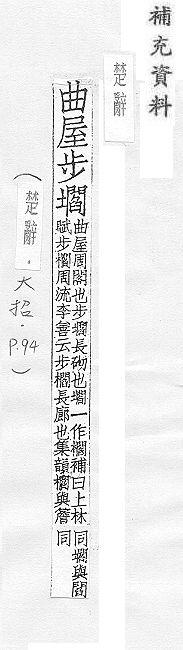 補充資料
楚辭
曲屋步壛
曲屋周閣也步壛長砌也壛一作櫩補曰上林
賦步櫩周流李善云步櫩長廊也集韻櫩與簷
同壛與閻
同
（楚辭．大招．P.94）